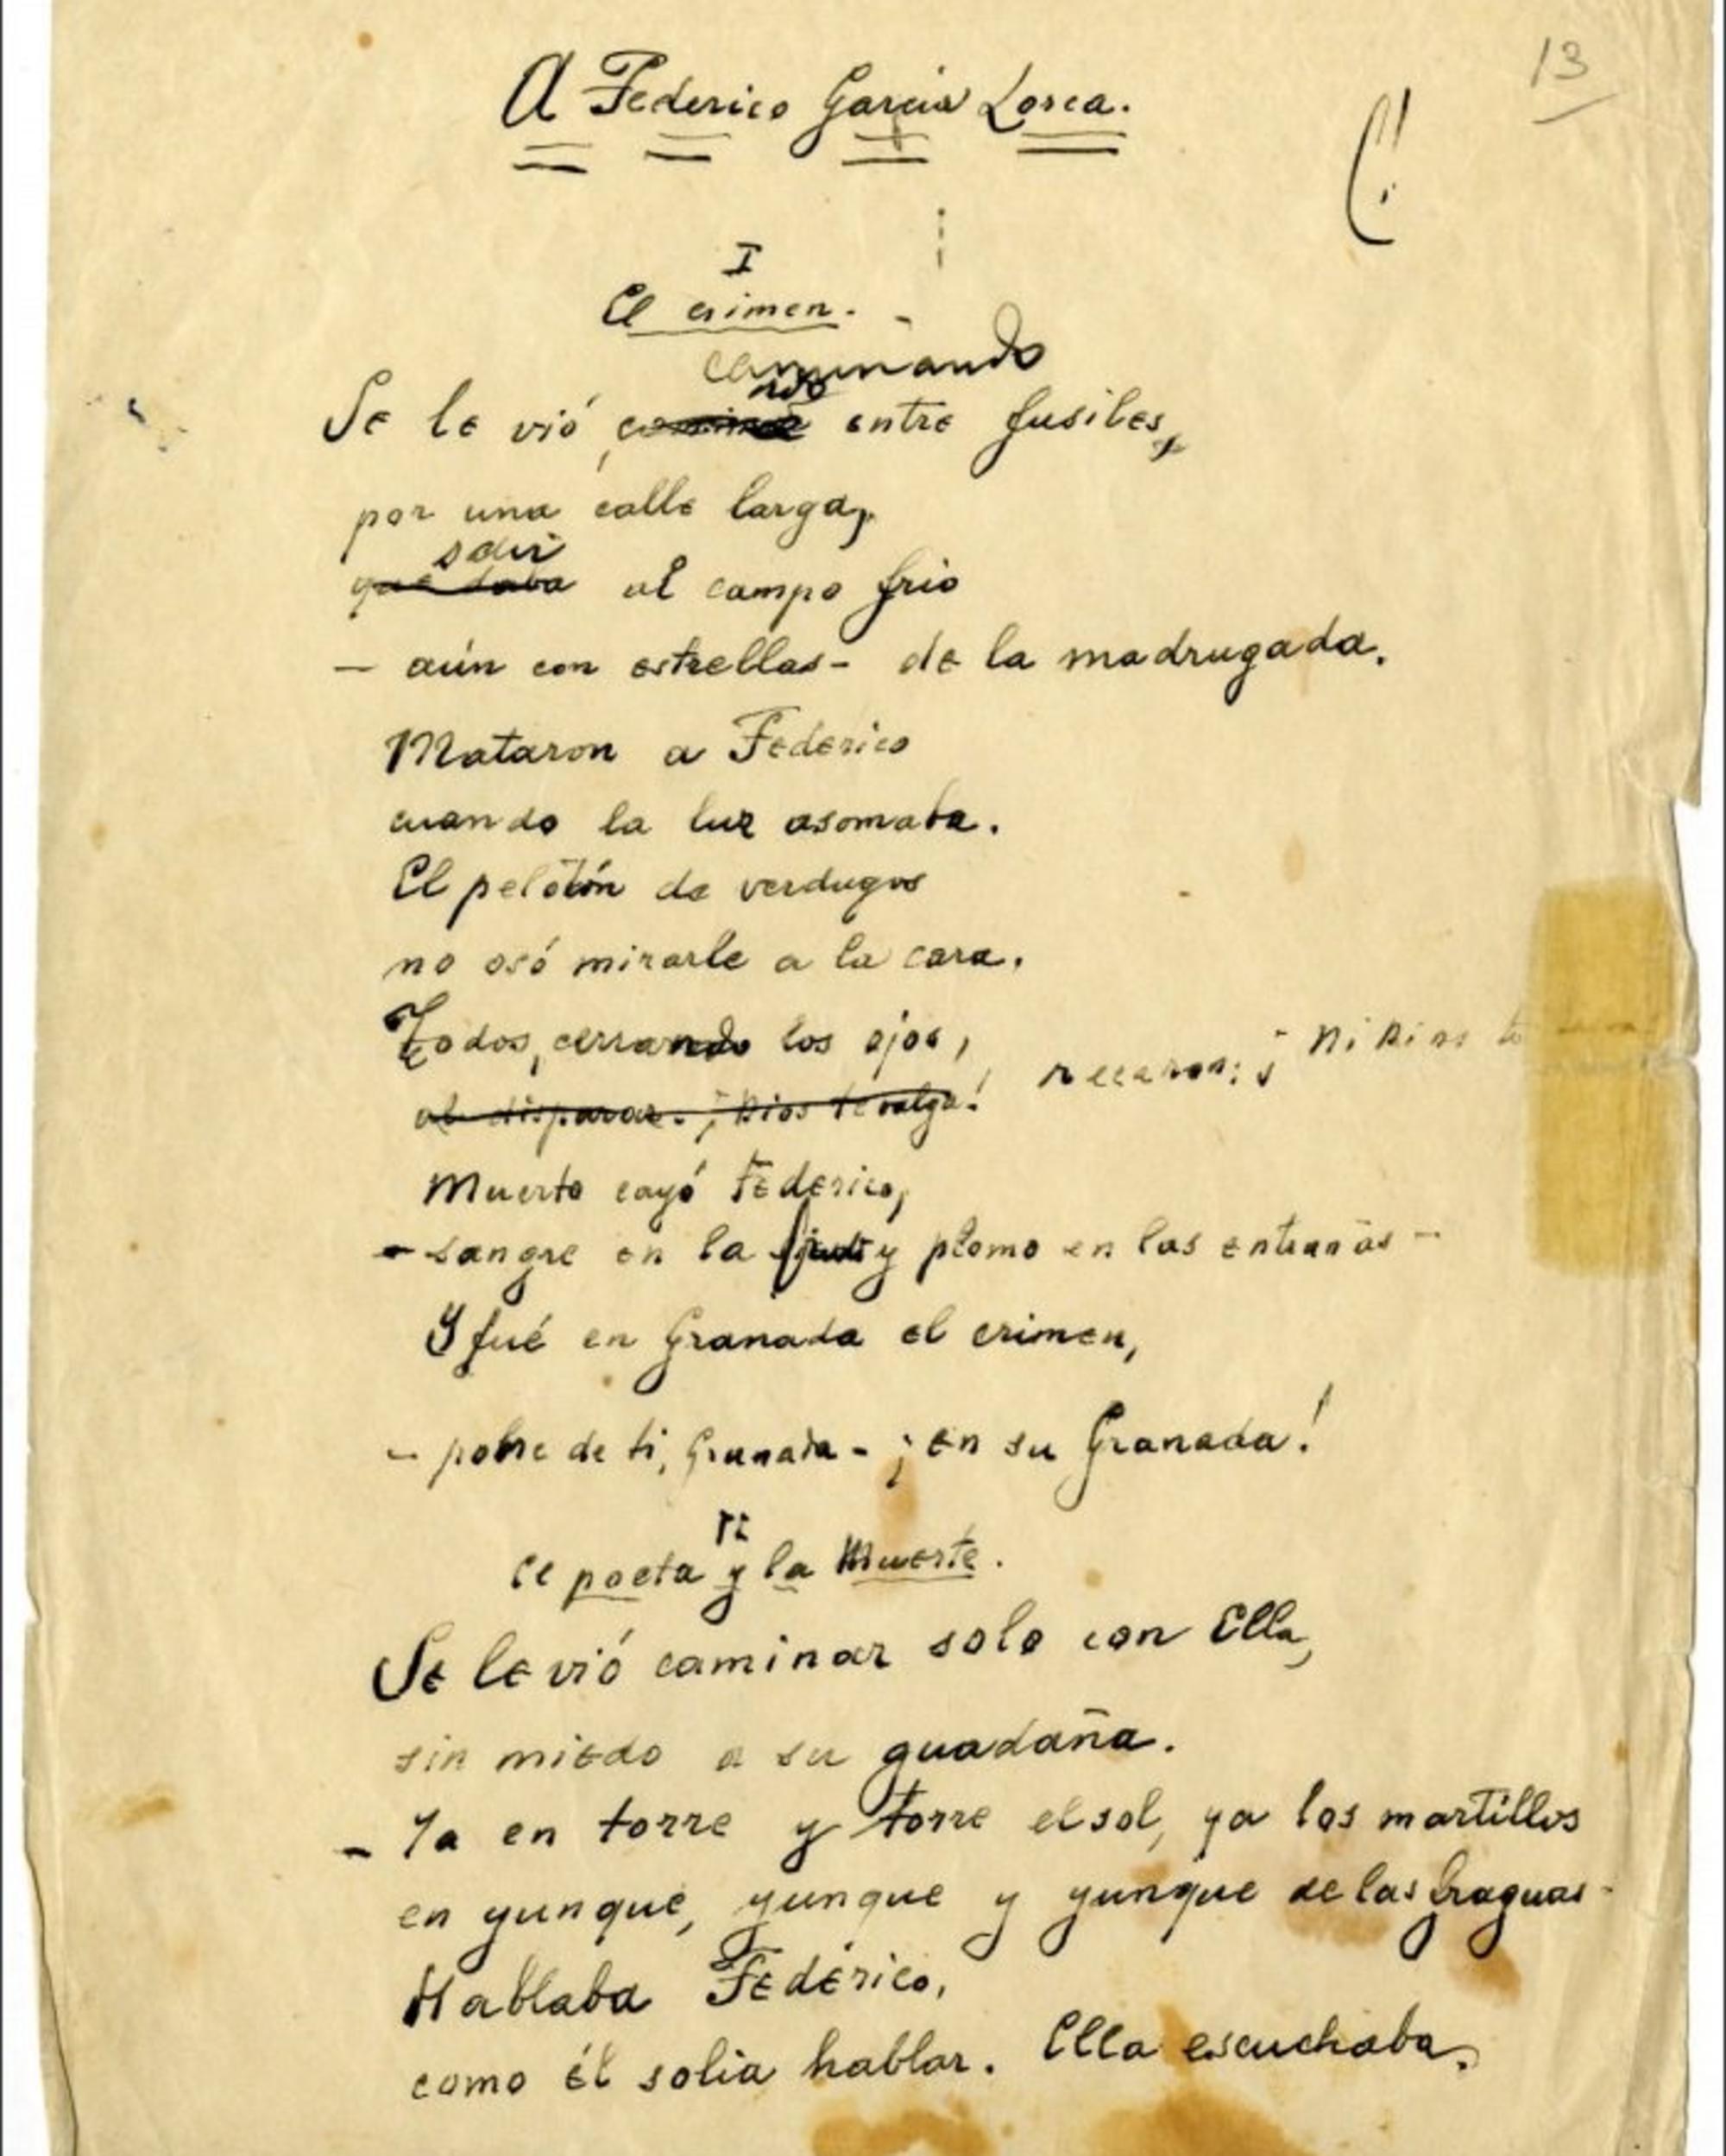 13
A Federico García Lorca.
I
El crimen.
caminando
Se le vió, entre fusiles,
por una calle larga,
salir
que daba al campo frio
— aún con estrellas - de la madrugada.
Mataron a Federico
cuando la luz asomaba.
El pelotón de verdugos
no osó mirarle a la cara.
Todos, cerrando los ojos,
rezaron: ¡ Ni Dios te
al disparar. ¡Dios te valga!
Muerto cayó Federico,
- sangre en la frente y plomo en las entrañas -
Y fué en Granada el crimen,
- pobre de ti, Granada - ¡en su Granada!
II
El poeta y la Muerte.
Se le vió caminar solo con Ella,
sin miedo a su guadaña.
- Ya en torre y torre el sol, ya los martillos
en yunque, yunque y yunque de las fraguas -
Hablaba Federico,
como él solia hablar. Ella escuchaba.